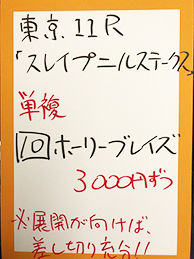 東京11R
「スレイプニルステークス」
単複
10 ホーリーブレイズ
3000円ずつ
※展開が向けば、
差し切り充分!!